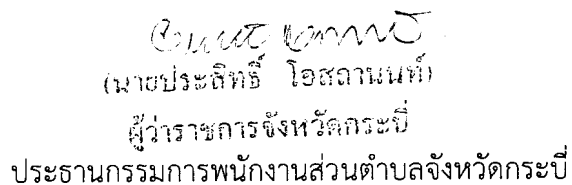 (นายประสิทธิ์ โอสถานนท์)
ผู้ว่าราชการจังหวัดกระบี่
ประธานกรรมการพนักงานส่วนตำบลจังหวัดกระบี่